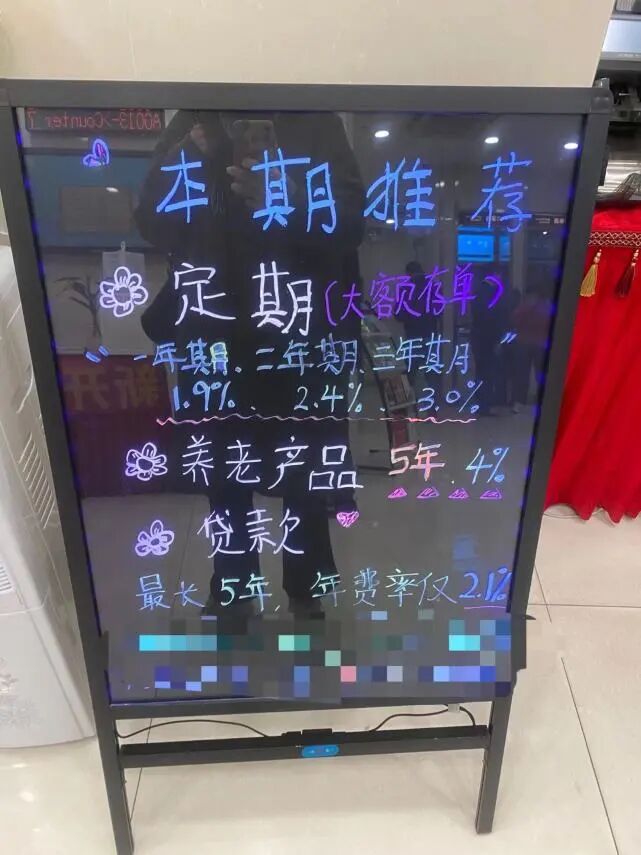 A0013->Counter 7
本期推荐
定期(大额存单)
"一年期、二年期、三年期"
1.9%、2.4%、3.0%
养老产品 5年.4%
贷款
最长5年,年费率仅2.1%
新开